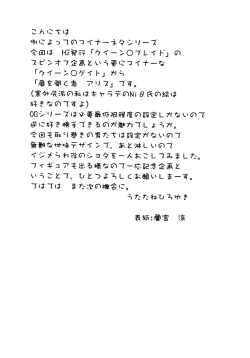 こんにちは
例によってのマイナーネタシリーズ
今回は HJ発行「クイーン〇ブレイド」の
スピンオフ企画という更にマイナーな
「クイーン〇ゲイト」から
「扉を開く者 アリス」です。
(実はキャラデのNiθ氏の絵は
好きなのですよ)
シリーズは必要最低限程度の設定しかないので
逆に好き勝手できるのが魅力でしょうか。
今回も取り巻きの男たちは設定がないので
無難な地味デザインで、あと淋しいので
イジメられ役のショタを一人おこしてみました。
フィギュアも出る様なので一応記念企画と
いうことで、ひとつよろしくお願いしまーす。
てはては また次の機会に。
うたたねひろゆき
表紙:蘭宮 涼